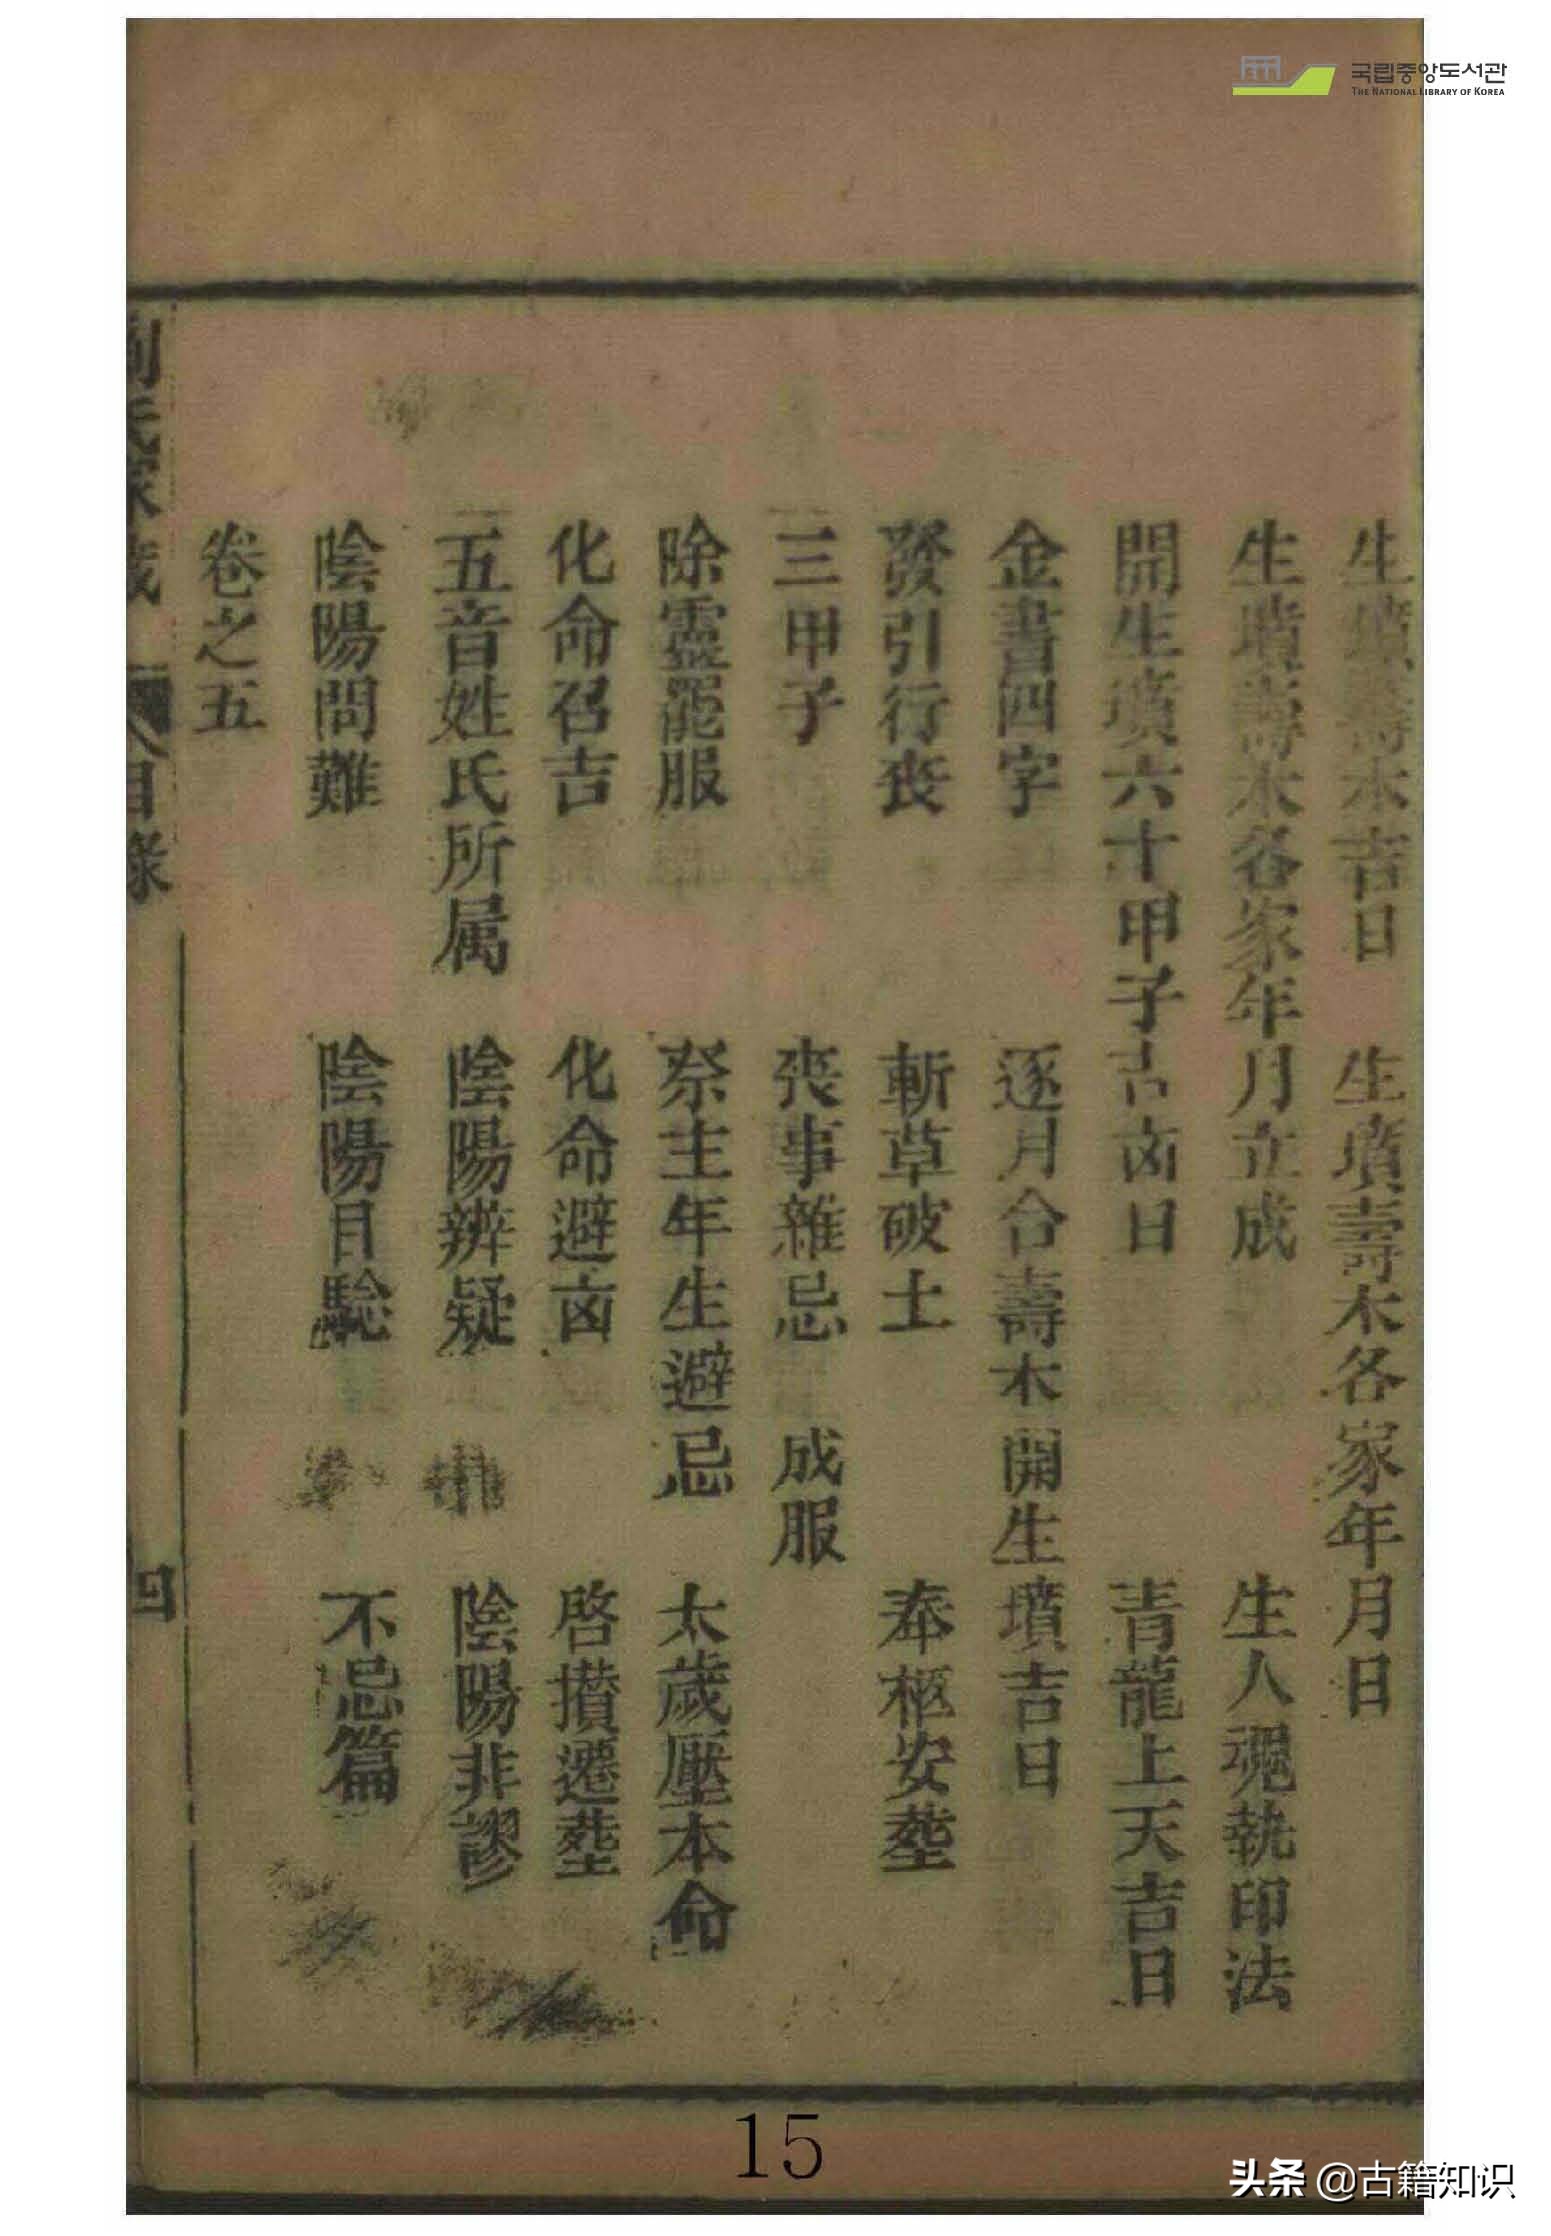 국립중앙도서관
THE NATIONAL LIBRARY OF KOREA
生墳壽木吉日　生墳壽木各家年月日
生墳壽木各家年月立成　生人魂執印法
開生墳六十甲子吉凶日　青龍上天吉日
金書四字　逐月合壽木開生墳吉日
發引行丧　斬草破土　奉柩安塟
三甲子　丧事雜忌　成服
除靈罷服　祭主年生避忌　太歲壓本命
化命召吉　化命避凶　啓攢遷塟
五音姓氏所属　陰陽辨疑　陰陽非謬
陰陽問難　陰陽目騐　不忌篇
卷之五
目錄
四
15
头条 @古籍知识